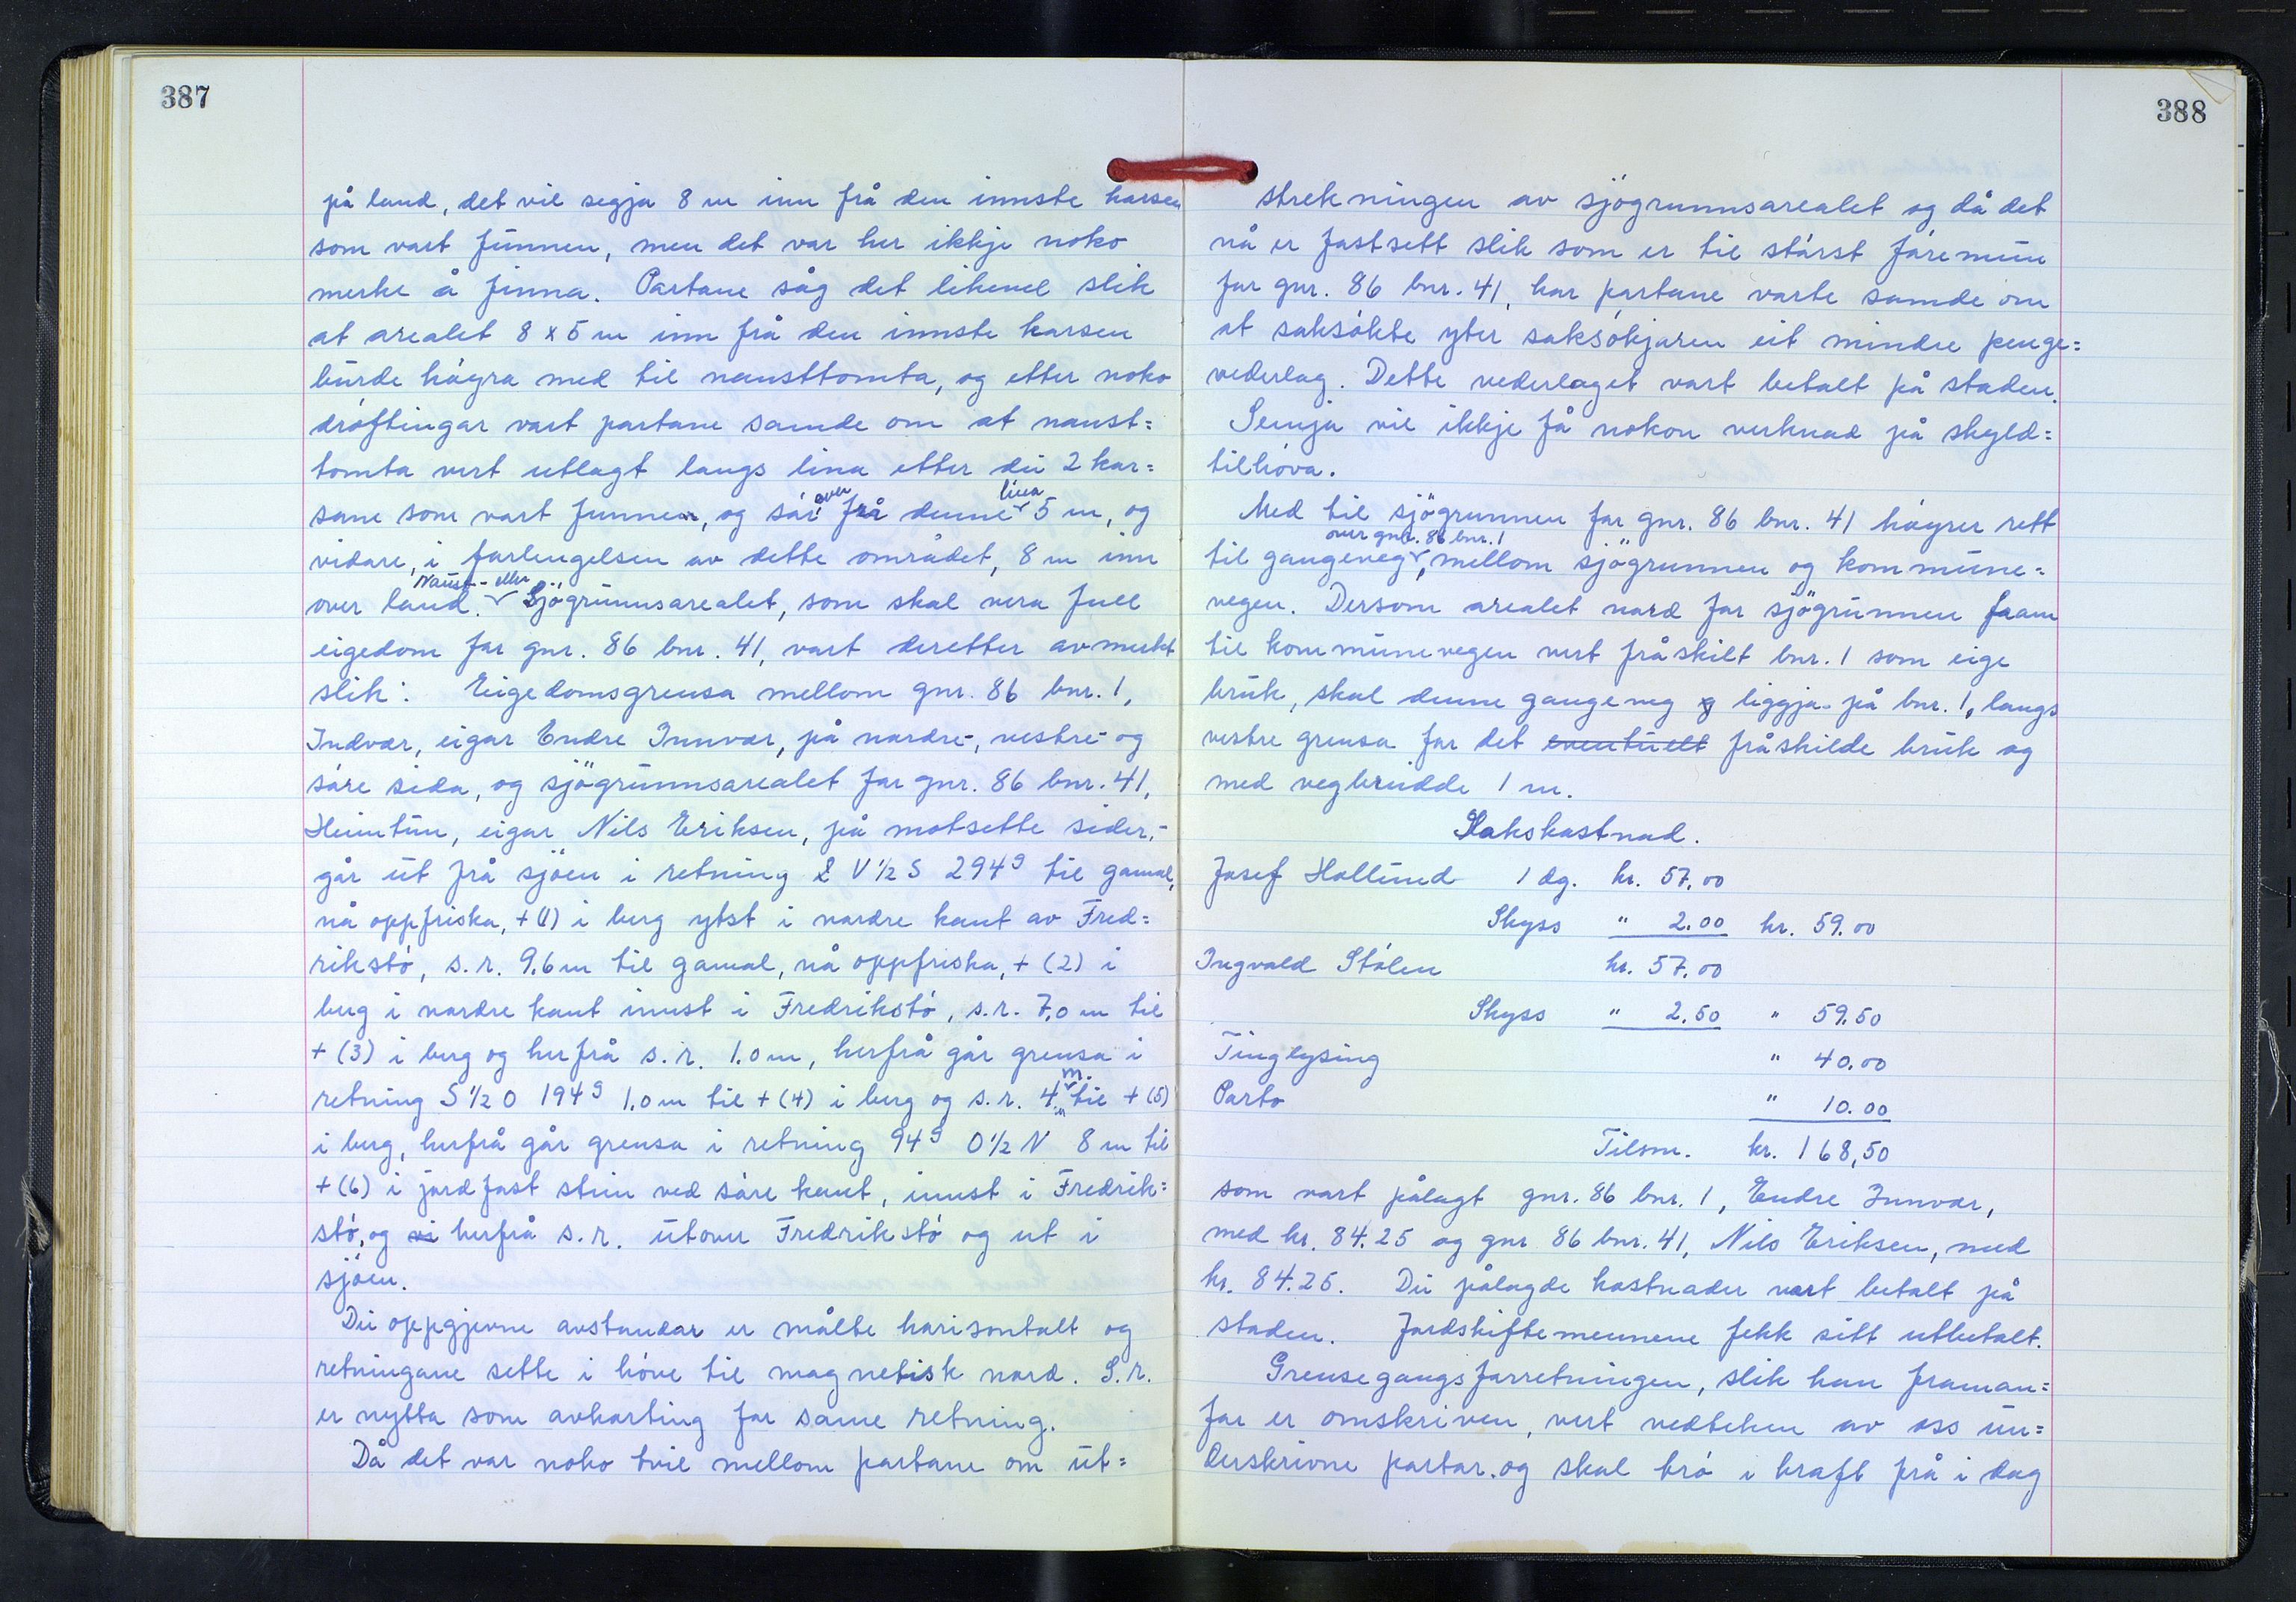 387
på land, det vil segja 8 m inn frå den innste korsen
som vart funnen, men det var her ikkje noko
merke å finna. Partane såg det likevel slik
at arealet 8 x 5 m inn frå den innste korsen
burde høyra med til nausttomta, og etter noko
drøftingar vart partane samde om at naust=
tomta vert utlagt langs lina etter dei 2 kor=
sane som vart funnen, og sør over frå denne lina 5 m, og
vidare, i forlengelsen av dette området, 8 m inn
over land. Naust- eller Sjøgrunnsarealet, som skal vera full
eigedom for gnr. 86 bnr. 41, vart deretter avmerkt
slik: Eigedomsgrensa mellom gnr. 86 bnr. 1,
Indvær, eigar Endre Innvær, på nordre-, vestre- og
søre sida, og sjøgrunnsarealet for gnr. 86 bnr. 41,
Heimtun, eigar Nils Eriksen, på motsette sider,-
går ut frå sjøen i retning V ½ S 294g til gamal,
nå oppfriska, + (1) i berg ytst i nordre kant av Fred=
rikstø, s.r. 9.6 m til gamal, nå oppfriska, + (2) i
berg i nordre kant innst i Fredrikstø, s.r. 7,0 m til
+ (3) i berg og herfrå s.r. 1.0 m, herfrå går grensa i
retning S ½ O 194g 1.0 m til + (4) i berg og s.r. 4 m. til + (5)
i berg, herfrå går grensa i retning 94g O ½ N 8 m til
+ (6) i jordfast stein ved søre kant, innst i Fredrik=
stø, og vi herfrå s.r. utover Fredrikstø og ut i
sjøen.
Dei oppgjevne avstandar er målte horisontalt og
retningane sette i høve til magnetisk nord. S.r.
er nytta som avkorting for same retning.
Då det var noko tvil mellom partane om ut=
388
strekningen av sjøgrunnsarealet og då det
nå er fastsett slik som er til størst føremun
for gnr. 86 bnr. 41, har partane vorte samde om
at saksøkte yter saksøkjaren eit mindre penge=
vederlag. Dette vederlaget vart betalt på staden.
Semja vil ikkje få nokon verknad på skyld=
tilhøva.
Med til sjøgrunnen for gnr. 86 bnr. 41 høyrer rett
til gangeveg over gnr. 86 bnr. 1, mellom sjøgrunnen og kommune=
vegen. Dersom arealet nord for sjøgrunnen fram
til kommunevegen vert fråskilt bnr. 1 som eige
bruk, skal denne gangeveg liggja på bnr. 1, langs
vestre grensa for det eventuelt fråskilde bruk og
med vegbreidde 1 m.
Sakskostnad.
Josef Hollund 1 dg. kr. 57.00
Skyss " 2.00 kr. 59.00
Ingvald Stølen kr. 57.00
Skyss " 2.50 " 59.50
Tinglysing " 40.00
Porto " 10.00
Tilsm. kr. 168,50
som vart pålagt gnr. 86 bnr. 1, Endre Innvær,
med kr. 84.25 og gnr 86 bnr. 41, Nils Eriksen, med
kr. 84.25. Dei pålagde kostnader vart betalt på
staden. Jordskiftemennene fekk sitt utbetalt.
Grensegangsforretningen, slik han framan=
for er omskriven, vert vedteken av oss un=
derskrivne partar og skal trø i kraft frå i dag